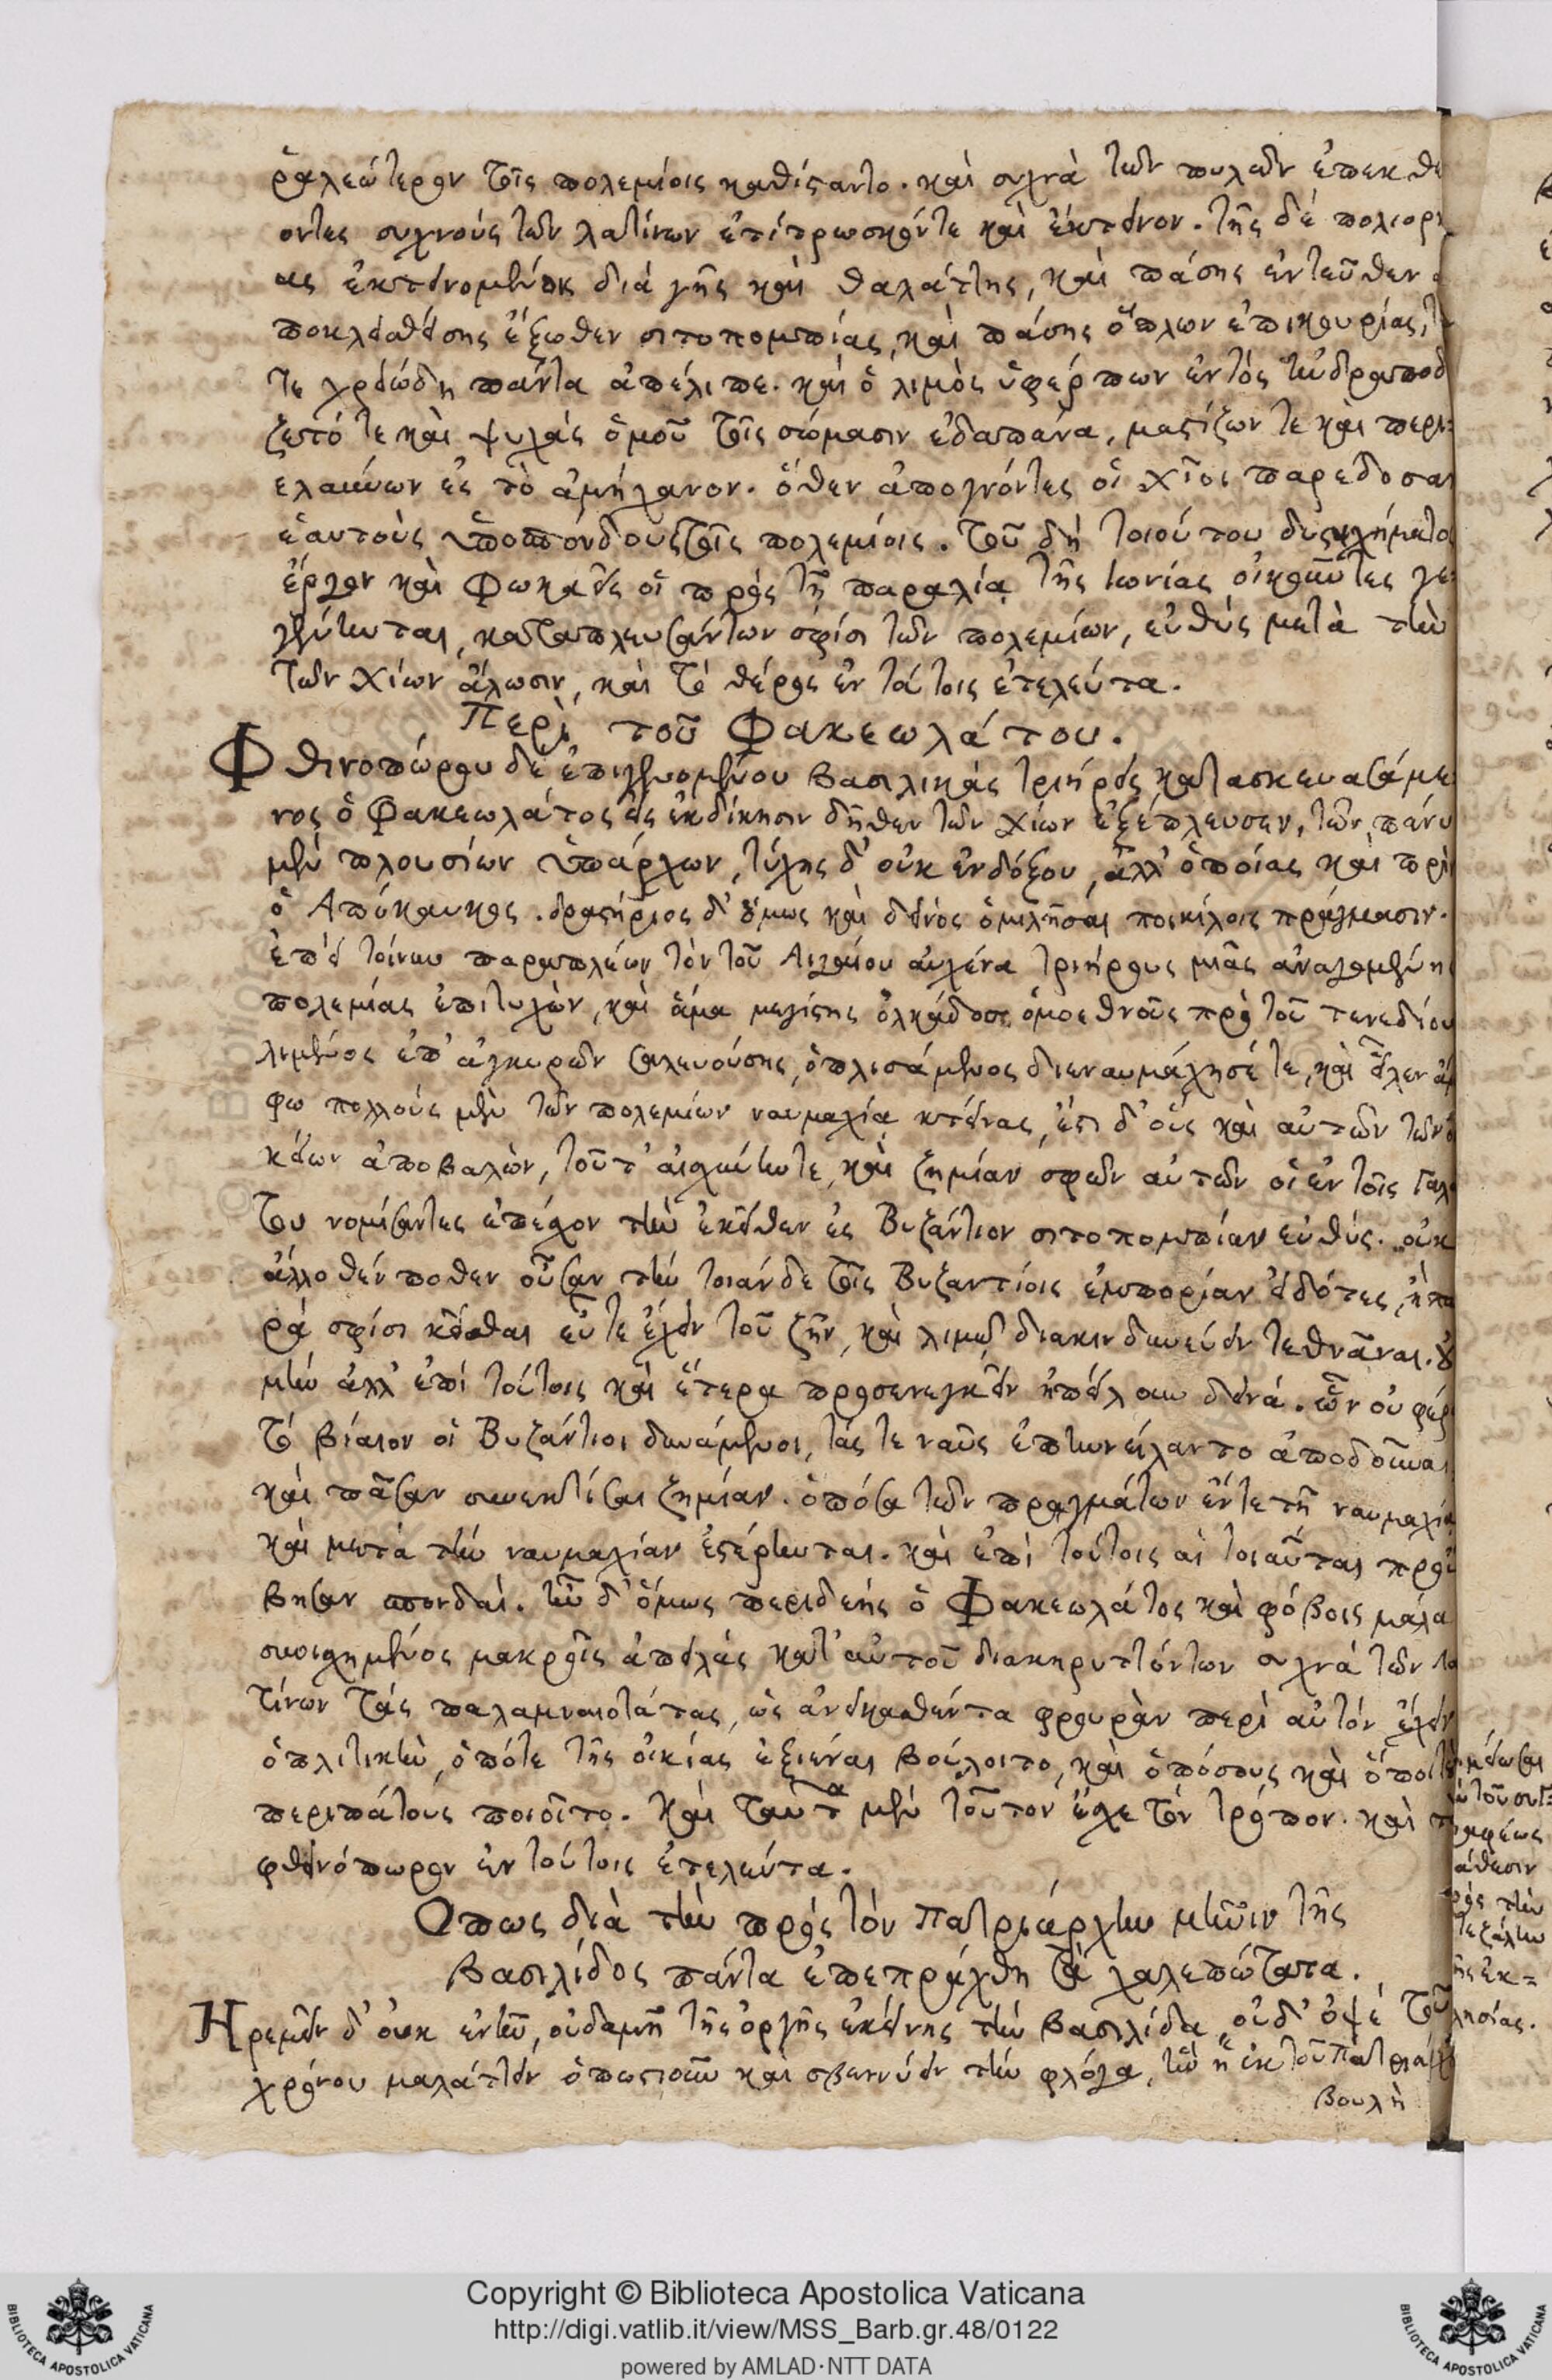 ῥαλεώτερον τοῖς πολεμίοις καθίσαντο. καὶ συχνὰ τῶν πυλῶν ἐπεκθέ
οντες συχνοὺς τῶν λατίνων ἐτίτρωσκόν τε καὶ ἔκτεινον. τῆς δὲ πολιορκ
ας ἐκτεινομένης διὰ γῆς καὶ θαλάττης, καὶ πάσης ἐντεῦθεν
ποκλεισθείσης ἔξωθεν σιτοπομπίας, καὶ πάσης ὅπλων ἐπικουρίας,
τε χρειώδη πάντα ἀπέλιπε. καὶ ὁ λιμὸς ὑφέρπων ἐντὸς ἠνδραποδ
ζετό τε καὶ ψυχὰς ὁμοῦ τοῖς σώμασιν ἐδαπάνα, μαστίζων τε καὶ περι
ελαύνων ἐς τὸ ἀμήχανον. ὅθεν ἀπογνόντες οἱ χῖοι παρέδοσαν
ἑαυτοὺς ὑποσπόνδους τοῖς πολεμίοις. τοῦ δὴ τοιούτου δυστυχήματος
ἔργον καὶ Φωκαεῖς οἱ πρὸς τῇ παραλίᾳ τῆς Ἰωνίας οἰκοῦντες γε
γένηνται, καταπλευσάντων σφίσι τῶν πολεμίων, εὐθὺς μετὰ τὴν
τῶν χίων ἅλωσιν, καὶ τὸ θέρος ἐν τούτοις ἐτελεύτα.
Περὶ τοῦ Φακεωλάτου.
Φθινοπώρου δὲ ἐπιγενομένου βασιλικὰς τριήρεις κατασκευασάμε
νος ὁ Φακεωλάτος εἰς ἐκδίκησιν δῆθεν τῶν χίων ἐξέπλευσεν, τῶν πάνυ
μὲν πλουσίων ὑπάρχων, τύχης δ' οὐκ ἐνδόξου, ἀλλ' ὁποίας καὶ πρὶν
ὁ Ἀπόκαυκος. δραστήριος δ' ὅμως καὶ δεινὸς ὁμιλῆσαι ποικίλοις πράγμασιν.
ἐπεὶ τοίνυν παραπλέων τὸν τοῦ Αἰγαίου αὐχένα τριήρους μιᾶς ἀναγομένης
πολεμίας ἐπιτυχὼν, καὶ ἅμα μεγίστης ὁλκάδος ὁμοεθνοῦς πρὸ τοῦ τενεδίου
λιμένος ἐπ' ἀγκυρῶν σαλευούσης, ὁπλισάμενος διεναυμάχησέ τε, καὶ εἷλεν ἄμ
φω πολλοὺς μὲν τῶν πολεμίων ναυμαχίᾳ κτείνας, ἔστι δ' οὓς καὶ αὐτῶν τῶν οἰ
κείων ἀποβαλὼν, τοῦτ' αἰσχύνην τε, καὶ ζημίαν σφῶν αὐτῶν οἱ ἐν τοῖς Γαλα
του νομίσαντες ἐπέσχον τὴν ἐκεῖθεν ἐς Βυζάντιον σιτοπομπίαν εὐθύς. οὐκ
ἄλλοθέν ποθεν οὖσαν τὴν τοιάνδε τοῖς Βυζαντίοις ἐμπορίαν εἰδότες, ἢ πα
ρά σφίσι κεῖσθαι εὖ τε ἔχειν τοῦ ζῆν, καὶ λιμῷ διακινδυνεύειν τεθνᾶναι. οὐ
μὴν ἀλλ' ἐπὶ τούτοις καὶ ἕτερα προσενεγκεῖν ἠπείλουν δεινά. ὧν οὐ φέρ
τὸ βίαιον οἱ Βυζάντιοι δυνάμενοι, τάς τε ναῦς ἐπηγγείλαντο ἀποδοῦναι
καὶ πᾶσαν συνεκτίσαι ζημίαν. ὁπόσα τῶν πραγμάτων ἔν τε τῇ ναυμαχίᾳ
καὶ μετὰ τὴν ναυμαχίαν ἐστέρηνται. καὶ ἐπὶ τούτοις αἱ τοιαῦται προὔ
βησαν σπονδαί. ἦν δ' ὅμως περιδεὴς ὁ Φακεωλάτος καὶ φόβοις μάλα
συνισχημένος μακροῖς ἀπειλὰς κατ' αὐτοῦ διακηρυττόντων συχνὰ τῶν λα
τίνων τὰς παλαμναιοτάτας, ὡς ἀναγκασθέντα φρουρὰν περὶ αὐτὸν ἔχειν
ὁπλιτικὴν, ὁπότε τῆς οἰκίας ἐξιέναι βούλοιτο, καὶ ὁπόσους καὶ ὅποι τὸν
περιπάτους ποιοῖτο. καὶ ταῦτα μὲν τοῦτον ἔσχε τὸν τρόπον. καὶ τὸ
φθινόπωρον ἐν τούτοις ἐτελεύτα.
Ὅπως διὰ τὴν πρὸς τὸν Πατριάρχην μῆνιν τῆς
βασιλίδος πάντα ἐπεπράχθη τὰ χαλεπώτατα.
Ἠρεμεῖν δ' οὐκ ἐνῆν, οὐδαμῆ τῆς ὀργῆς ἐκείνης τὴν βασιλίδα, οὐδ' ὀψὲ τοῦ
χρόνου μαλάττειν ὁπωστιοῦν καὶ σβεννύειν τὴν φλόγα, ἣν ἡ ἐκ τοῦ Πατριάρχ
βουλὴ
Copyright © Biblioteca Apostolica Vaticana
http://digi.vatlib.it/view/MSS_Barb.gr.48/0122
powered by AMLAD·NTT DATA
BIBLIOTECA APOSTOLICA VATICANA
BIBLIOTECA APOSTOLICA VATICANA